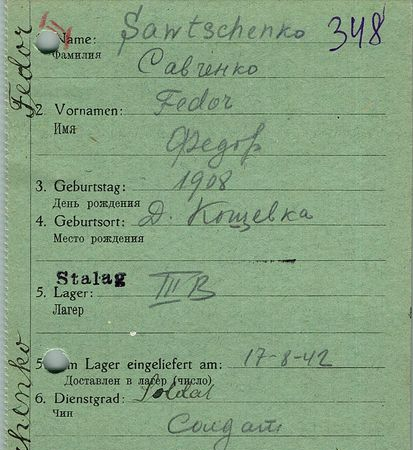 Name: Sawtschenko 348
Фамилия Савченко
2 Vornamen: Fedor
Имя Федор
3. Geburtstag: 1908
День рождения
4. Geburtsort: д. Кощевка
Место рождения
Stalag
5. Lager: III B
Лагер
5. m Lager eingeliefert am: 17-8-42
Доставлен в лагер (число)
6. Dienstgrad: Soldat
Чин Солдат
Fedor
chenko